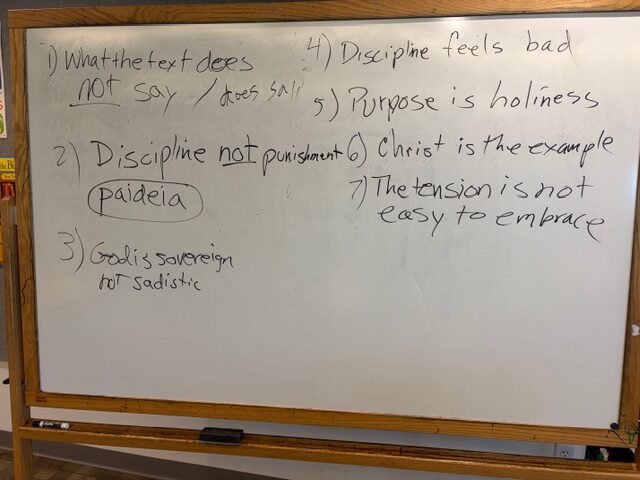 1) What the text does
not say / does say
2) Discipline not punishment
paideia
3) God is sovereign
not sadistic
4) Discipline feels bad
5) Purpose is holiness
6) Christ is the example
7) The tension is not
easy to embrace